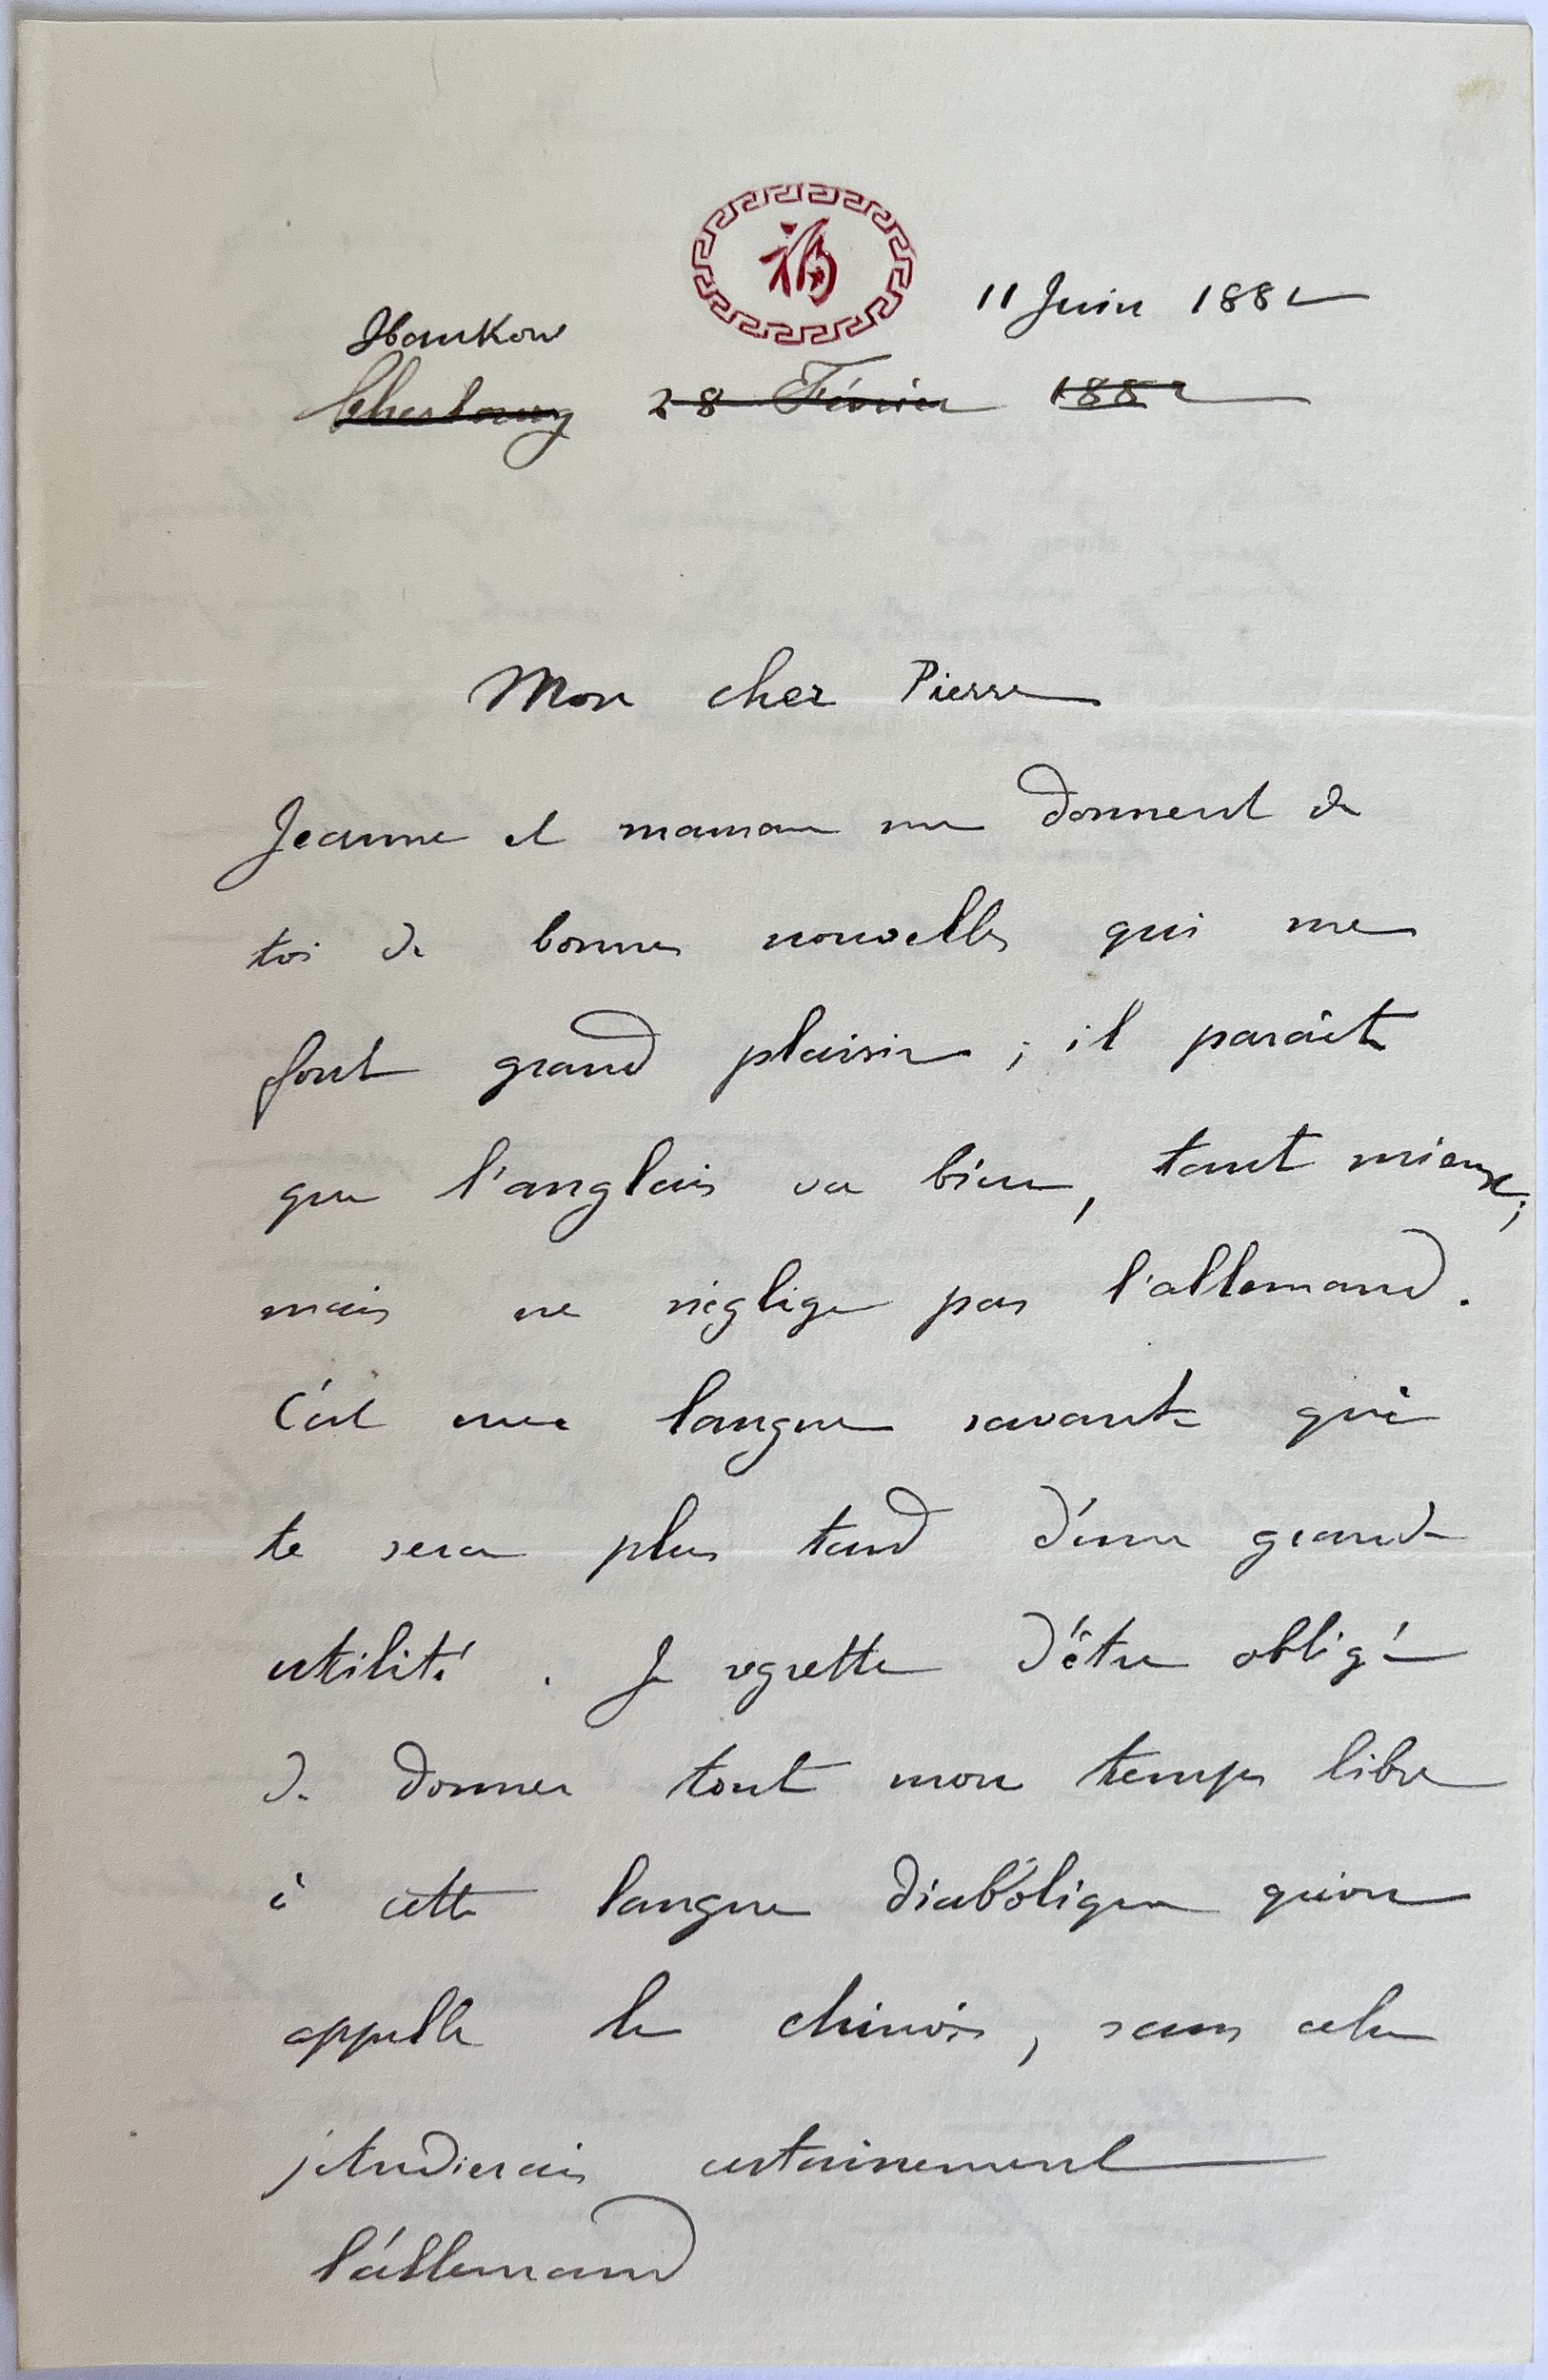 福
Hankow 11 Juin 1882
Cherbourg 28 Février 1882
Mon cher Pierre
Jeanne et maman me donnent de
toi de bonnes nouvelles qui me
font grand plaisir ; il paraît
que l'anglais va bien, tant mieux ;
mais ne néglige pas l'allemand.
C'est une langue savante qui
te sera plus tard d'une grande
utilité . Je regrette d'être obligé
de donner tout mon temps libre
à cette langue diabolique qu'on
appelle le chinois, sans cela
j'étudierais certainement
l'allemand